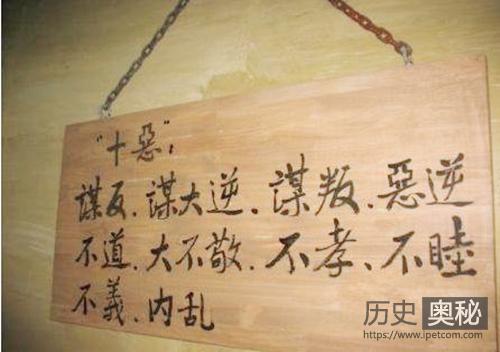 "十惡"：
謀反、謀大逆、謀叛、惡逆
不道、大不敬、不孝、不睦
不義、内乱
历史奥秘
https://www.ipetcom.com